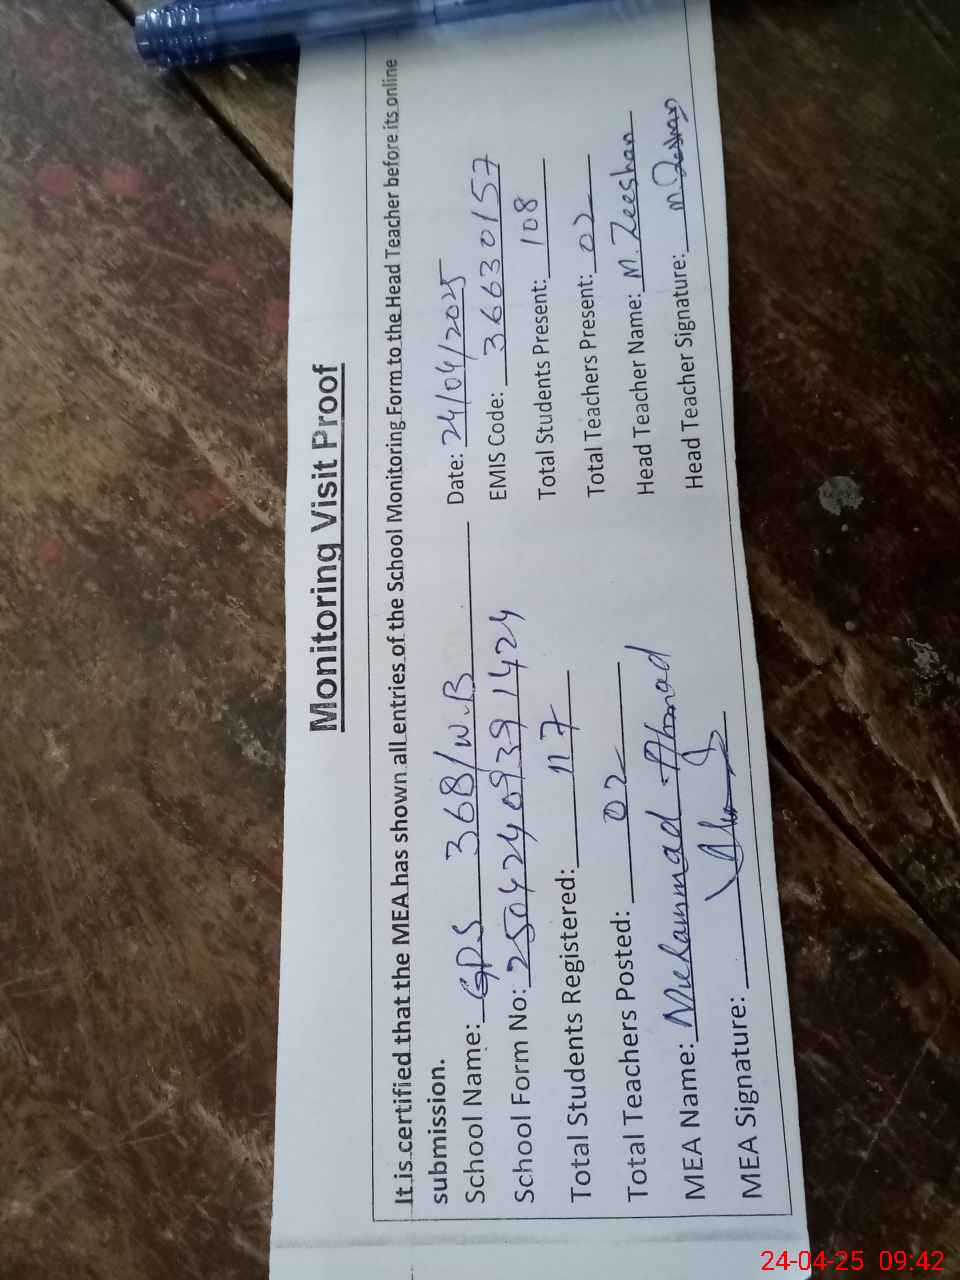 Monitoring Visit Proof
It is certified that the MEA has shown all entries of the School Monitoring Form to the Head Teacher before its online
submission.
School Name: GPS 368/W.B Date: 24/04/2025
School Form No: 25042409391424 EMIS Code: 36630157
Total Students Registered: 117 Total Students Present: 108
Total Teachers Posted: 02 Total Teachers Present: 02
MEA Name: Muhammad Ahmad Head Teacher Name: M. Zeeshan
MEA Signature: Head Teacher Signature: M. Zeeshan
24-04-25 09:42